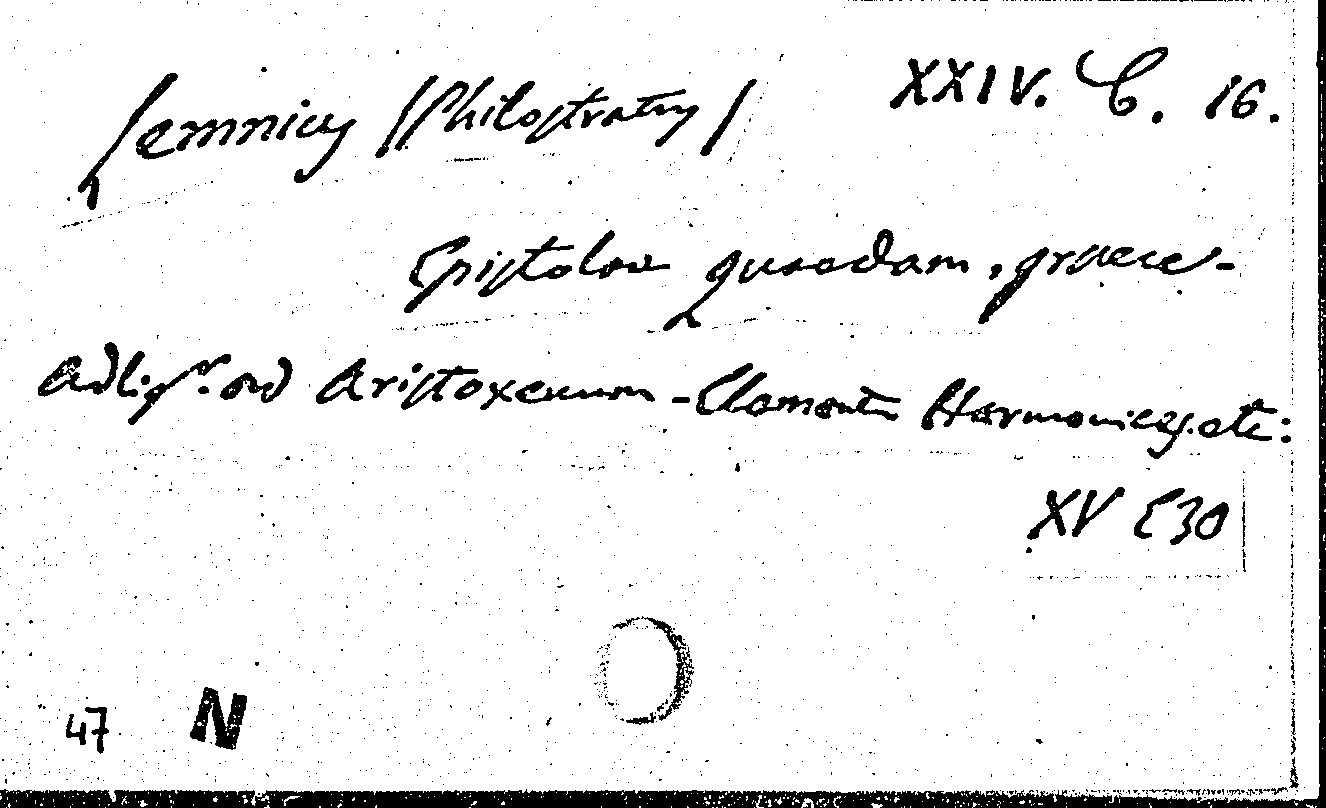 Lemnius /Philostratus/ XXIV. C. 16.
Epistolae quaedam, graece-
Adlig. ad Aristoxenum - Elementa Harmonices. etc:
XV C 30
47 N